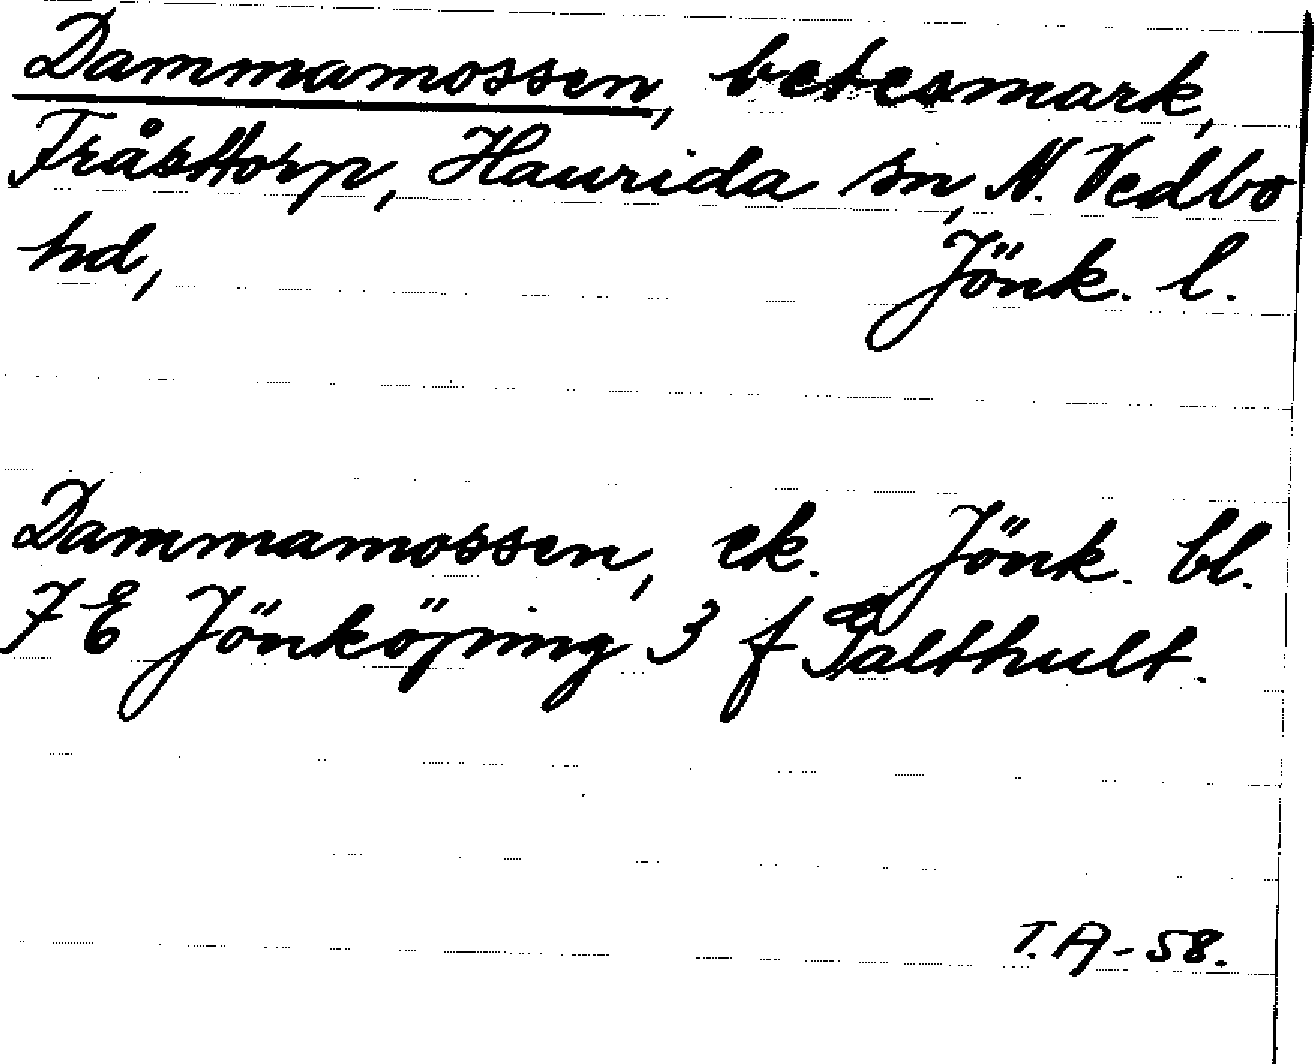 Dammamossen, betesmark,
Fråsttorp, Haurida sn, N. Vedbo
hd, Jönk. l.
Dammamossen, ek. Jönk. bl.
7 E Jönköping 3 f Fålthult.
T. A - 58.